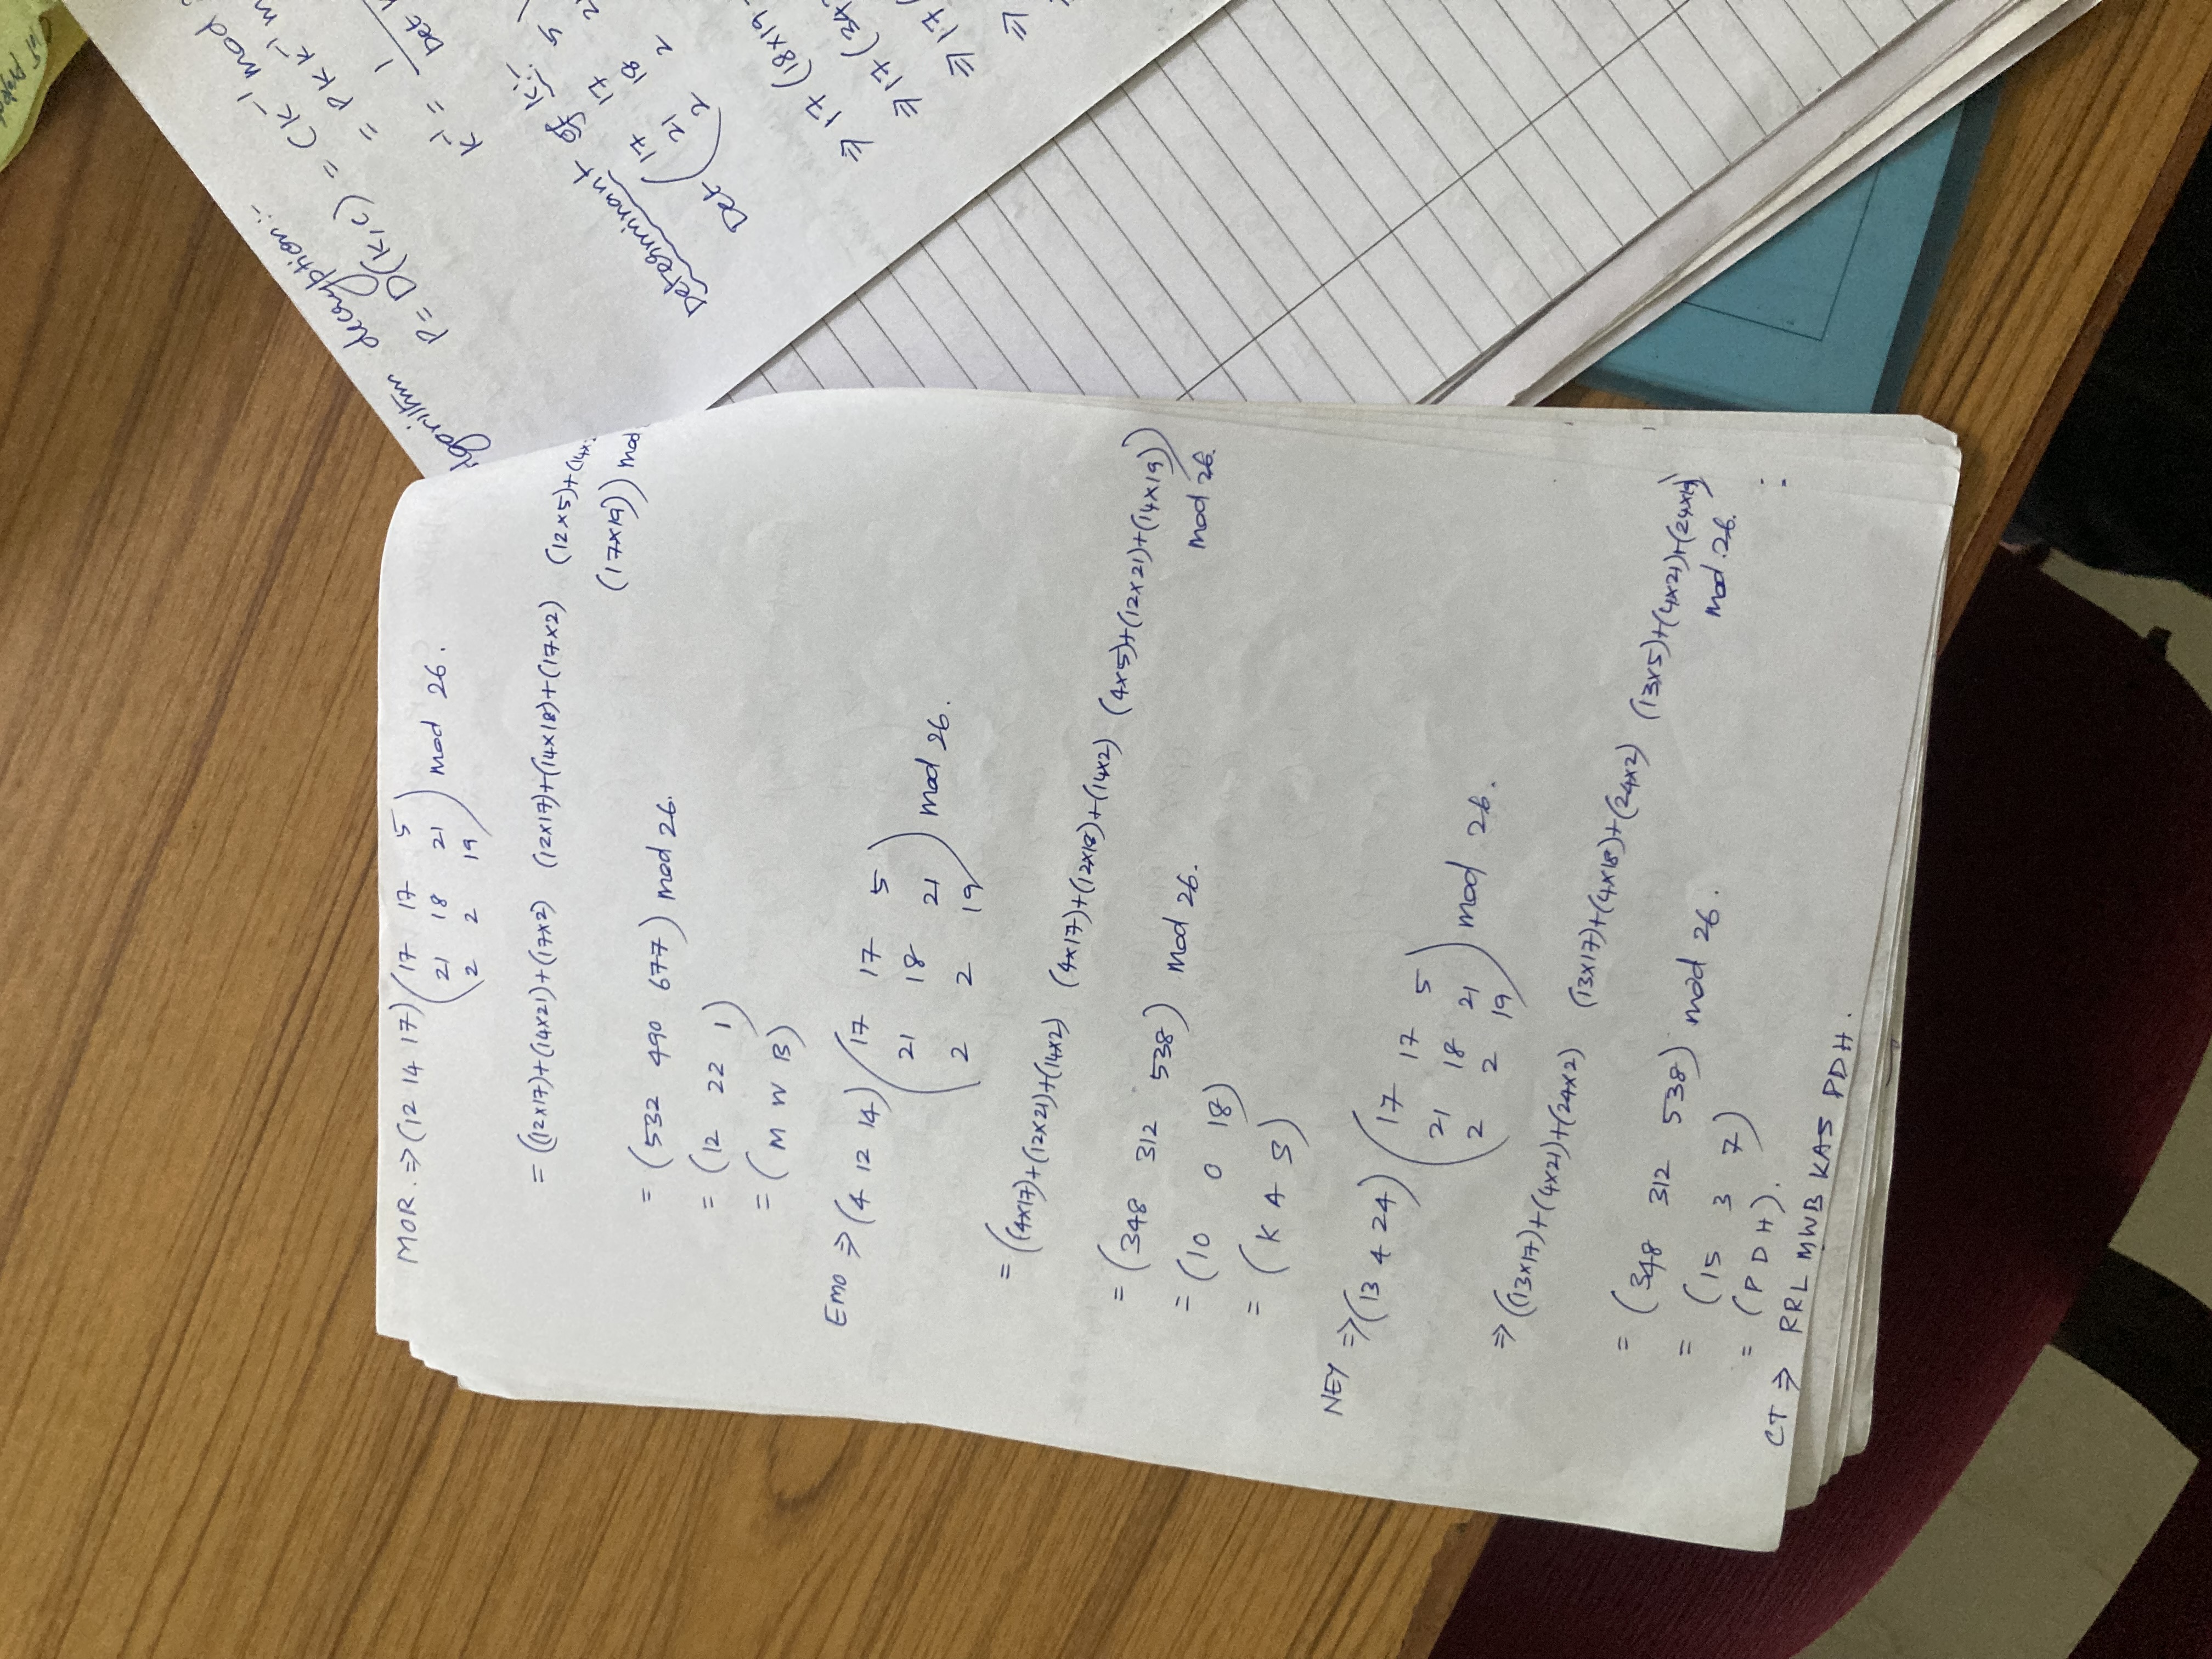 MOR. ⇒ (12 14 17) ( 17 17 5
21 18 21
2 2 19 ) mod 26.
= ((12×17)+(14×21)+(17×2) (12×17)+(14×18)+(17×2) (12×5)+(14×
(17×19)) mod
= (532 490 677) mod 26.
= (12 22 1)
= (M W B)
Emo ⇒ (4 12 14) ( 17 17 5
21 18 21
2 2 19 ) mod 26.
= ((4×17)+(12×21)+(14×2) (4×17)+(12×18)+(14×2) (4×5)+(12×21)+(14×19))
mod 26.
= (348 312 538) mod 26.
= (10 0 18)
= (K A S)
NEY ⇒ (13 4 24) ( 17 17 5
21 18 21
2 2 19 ) mod 26.
⇒ ((13×17)+(4×21)+(24×2) (13×17)+(4×18)+(24×2) (13×5)+(4×21)+(24×19)
mod.26.
= (348 312 538) mod 26.
= (15 3 7)
= (P D H).
CT ⇒ RRL MWB KAS PDH.
lgorithm decryption:-
P = D(K,C) = CK⁻¹ mod
= PKK⁻¹ m
K⁻¹ = 1
Det K
Determinant of K:-
Det ( 17 17 5
21 18 21
2 2
⇒ 17 (18×19 -
⇒ 17 (342
⇒ 17 (
⇒